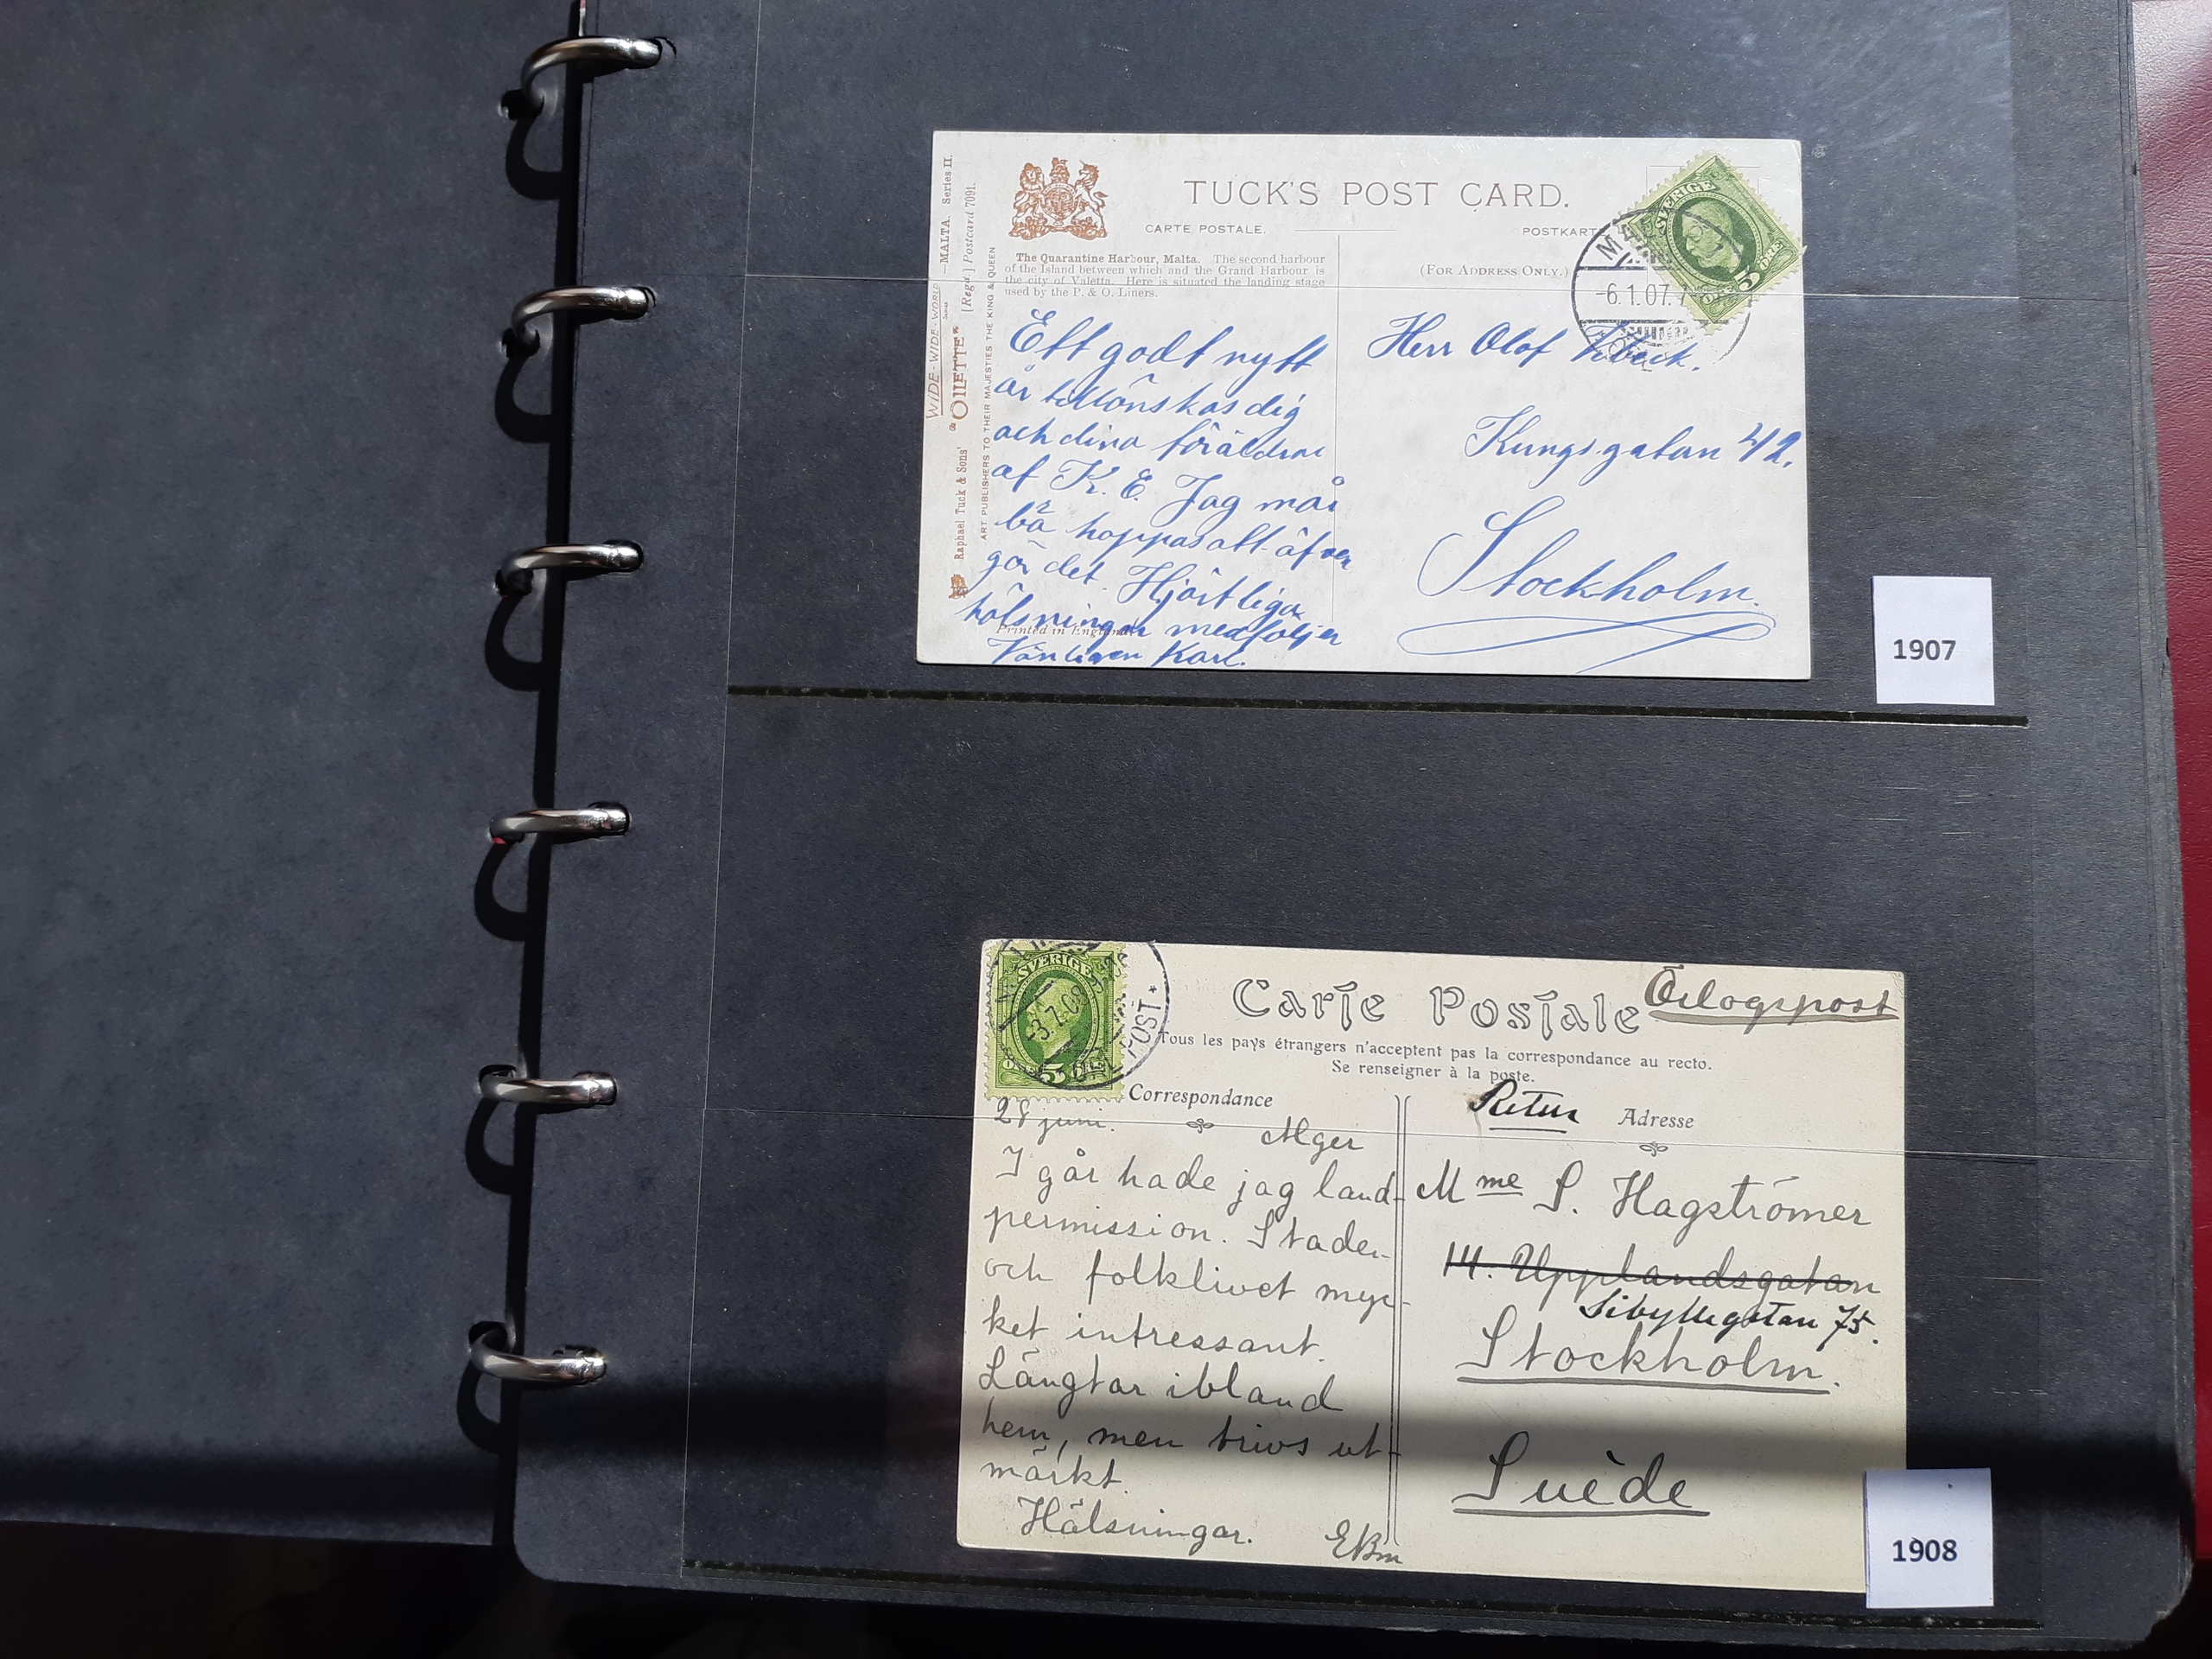 TUCK'S POST CARD.
CARTE POSTALE.
POSTKARTE
(FOR ADDRESS ONLY.)
The Quarantine Harbour, Malta. The second harbour
of the Island between which and the Grand Harbour is
the city of Valetta. Here is situated the landing stage
used by the P. & O. Liners.
WIDE-WIDE-WORLD
Series
—MALTA. Series II.
"OILETTE" [Regd.] Postcard 7091.
Raphael Tuck & Sons'
ART PUBLISHERS TO THEIR MAJESTIES THE KING & QUEEN
Printed in England
SVERIGE
5 ÖRE
-6.1.07.
Ett godt nytt
år tillönskas dig
och dina föräldrar
af K. E. Jag mår
bra hoppas att äfven
gör det. Hjärtliga
hälsningar medföljer
Vänligen Karl.
Herr Olof
Kungsgatan 42.
Stockholm.
1907
SVERIGE
5 ÖRE
-3.7.08
POST
Carte Postale
Örlogspost
Tous les pays étrangers n'acceptent pas la correspondance au recto.
Se renseigner à la poste.
Correspondance
Adresse
Retur
28 juni.
Alger
I går hade jag land-
permission. Staden
och folklivet myc-
ket intressant.
Längtar ibland
hem, men trivs ut-
märkt.
Hälsningar.
Mme S. Hagströmer
14. Upplandsgatan
Sibyllegatan 75.
Stockholm.
Suède
1908